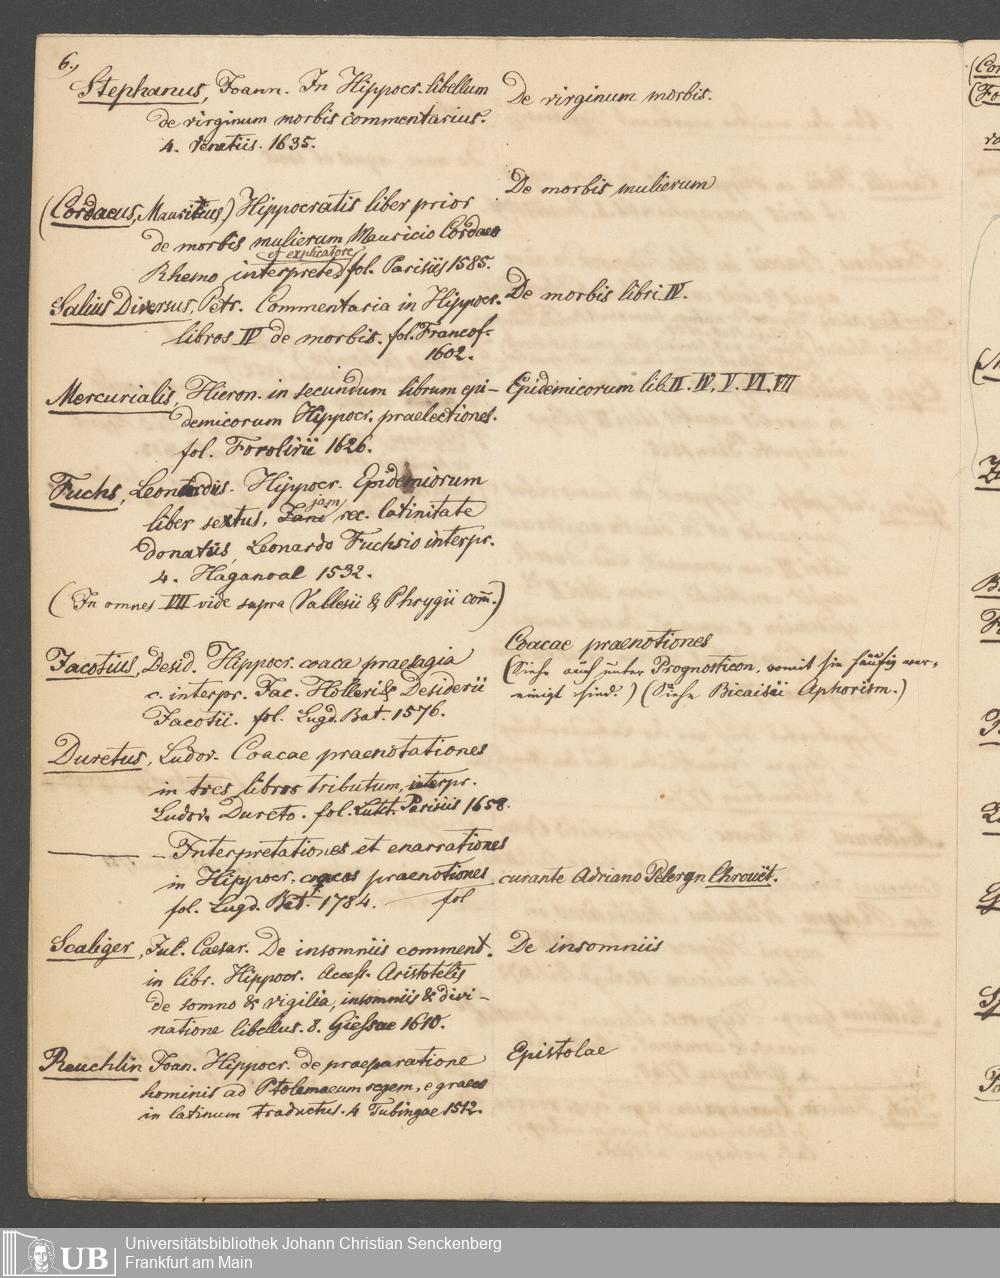 6.,
Stephanus, Joann. In Hippocr. libellum
de virginum morbis commentarius.
4. Venetiis. 1635.
De virginum morbis.
(Cordaeus, Mauritius) Hippocratis liber prior
de morbis mulierum Mauricio Cordaeo
et explicatore
Rhemo interprete fol. Parisiis 1585.
De morbis mulierum
Salius Diversus, Petr. Commentaria in Hippocr.
libros IV de morbis. fol. Francof.
1602.
De morbis libri IV.
Mercurialis, Hieron. in secundum librum epi-
demicorum Hippocr. praelectiones.
fol. Forolivii 1626.
Epidemicorum lib. II. IV, V. VI, VII
Fuchs, Leonardus. Hippocr. Epidemiorum
jam
liber sextus, Jani rec. latinitate
donatus, Leonardo Fuchsio interpr.
4. Haganoae 1532.
(In omnes VIII vide supra Vallesii & Phrygii com̄.)
Jacotius, Desid. Hippocr. coaca praesagia
c. interpr. Jac. Hollerii & Desiderii
Jacotii. fol. Lugd. Bat. 1576.
Coacae praenotiones
(Siehe auch unter Prognosticon, womit sie häufig ver-
einigt sind.) (Siehe Bicaisii Aphorism.)
Duretus, Ludov. Coacae praenotationes
in tres libros tributum, interpr.
Ludov. Dureto. fol. Lutet. Parisiis 1658.
— Interpretationes et enarrationes
in Hippocr. coacas praenotiones
fol. Lugd. Bat. 1784. — fol
curante Adriano Pelergn Chrouët.
Scaliger, Jul. Caesar. De insomniis comment.
in libr. Hippocr. Access. Aristotelis
de somno & vigilia, insomniis & divi-
natione libellus. 8. Giessae 1610.
De insomniis
Reuchlin Joan. Hippocr. de praeparatione
hominis ad Ptolemaeum regem, e graeco
in latinum traductus. 4 Tubingae 1512.
Epistolae
UB
Universitätsbibliothek Johann Christian Senckenberg
Frankfurt am Main